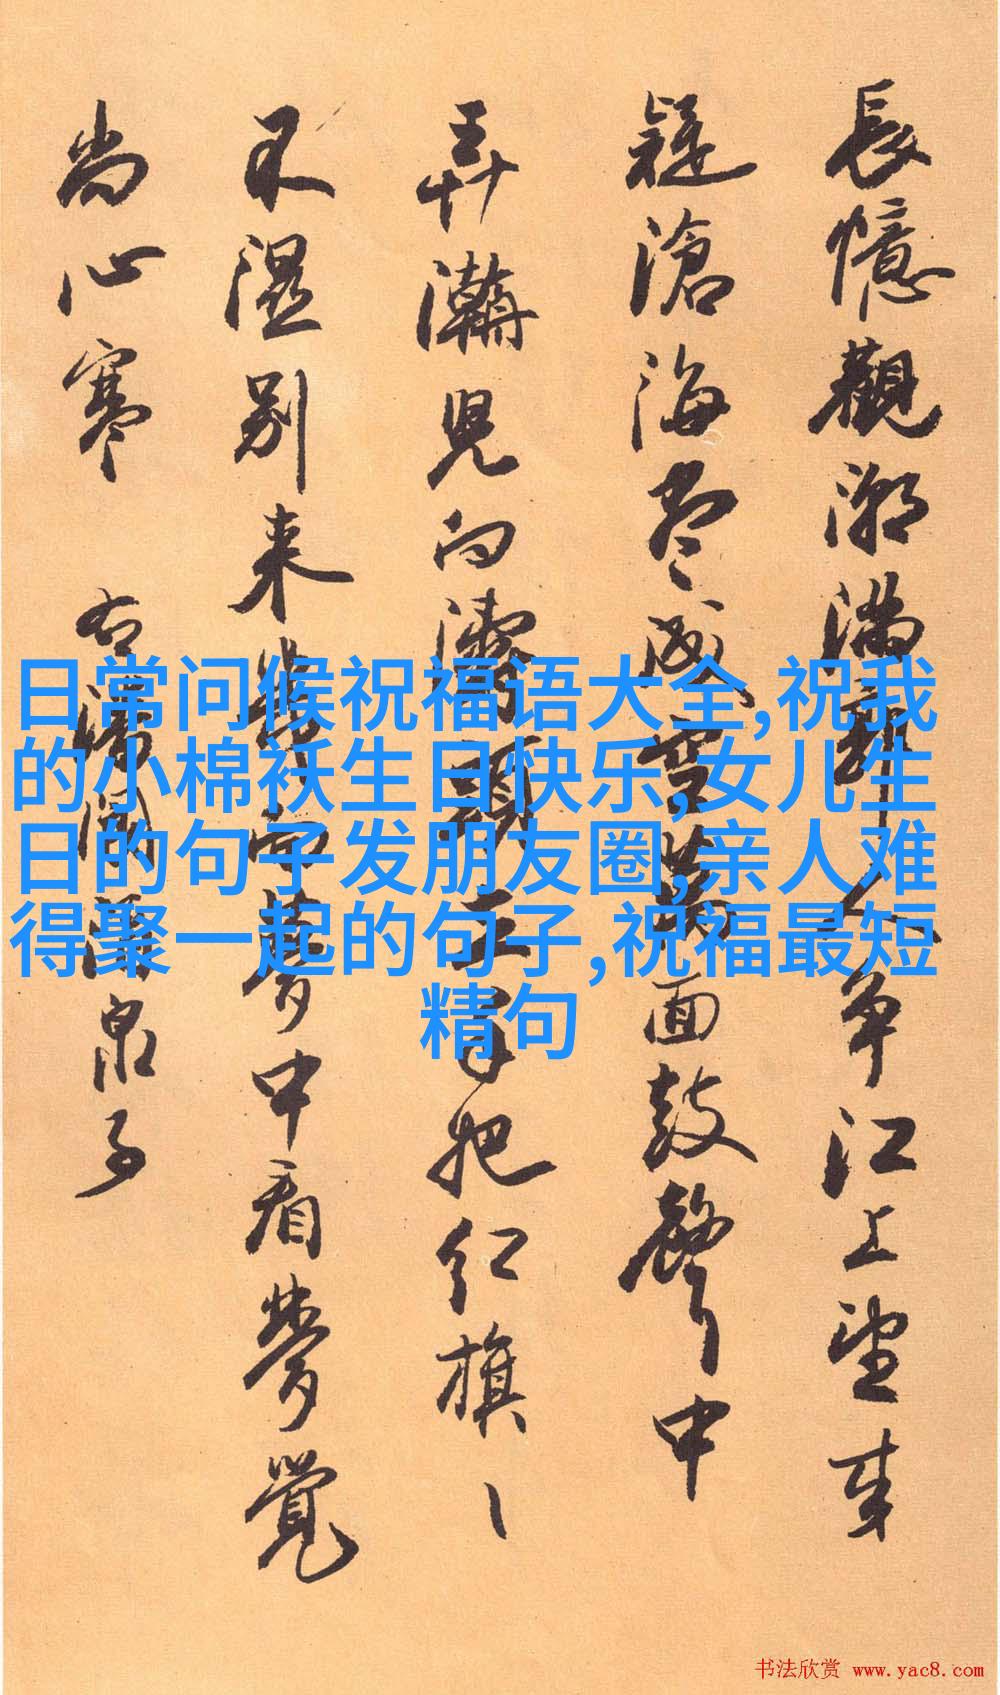 長憶觀潮滿郭人争江上望来
疑滄海盡成空萬面鼓聲中
弄濤児向濤頭立手把红旗、
不濕别来幾向夢中看夢覺
尚心寒 右潘阆酒泉子
日常问候祝福语大全,祝我
的小棉袄生日快乐,女儿生
日的句子发朋友圈,亲人难
得聚一起的句子,祝福最短
精句
书法欣赏 www.yac8.com